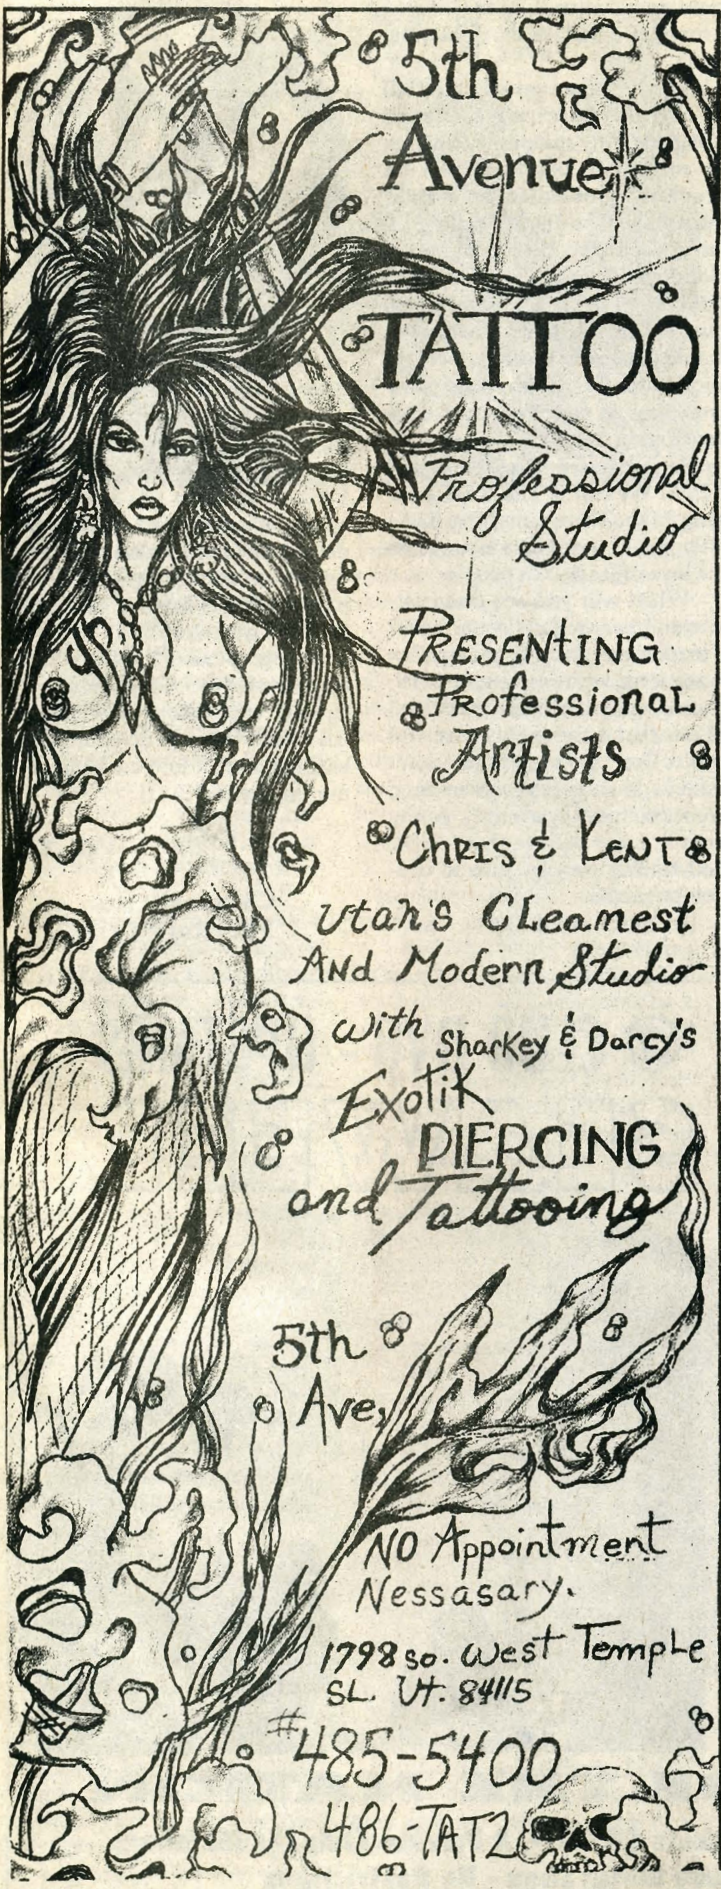 5th
Avenue
TATTOO
Professional
Studio
PRESENtING
Professional
Artists
Chris & Kent
Utah's Cleanest
And Modern Studio
with Sharkey & Darcy's
Exotik
PIERCING
and Tattooing
5th
Ave,
NO Appointment
Nessasary.
1798 so. West Temple
SL. Ut. 84115
#485-5400
486-TAT2